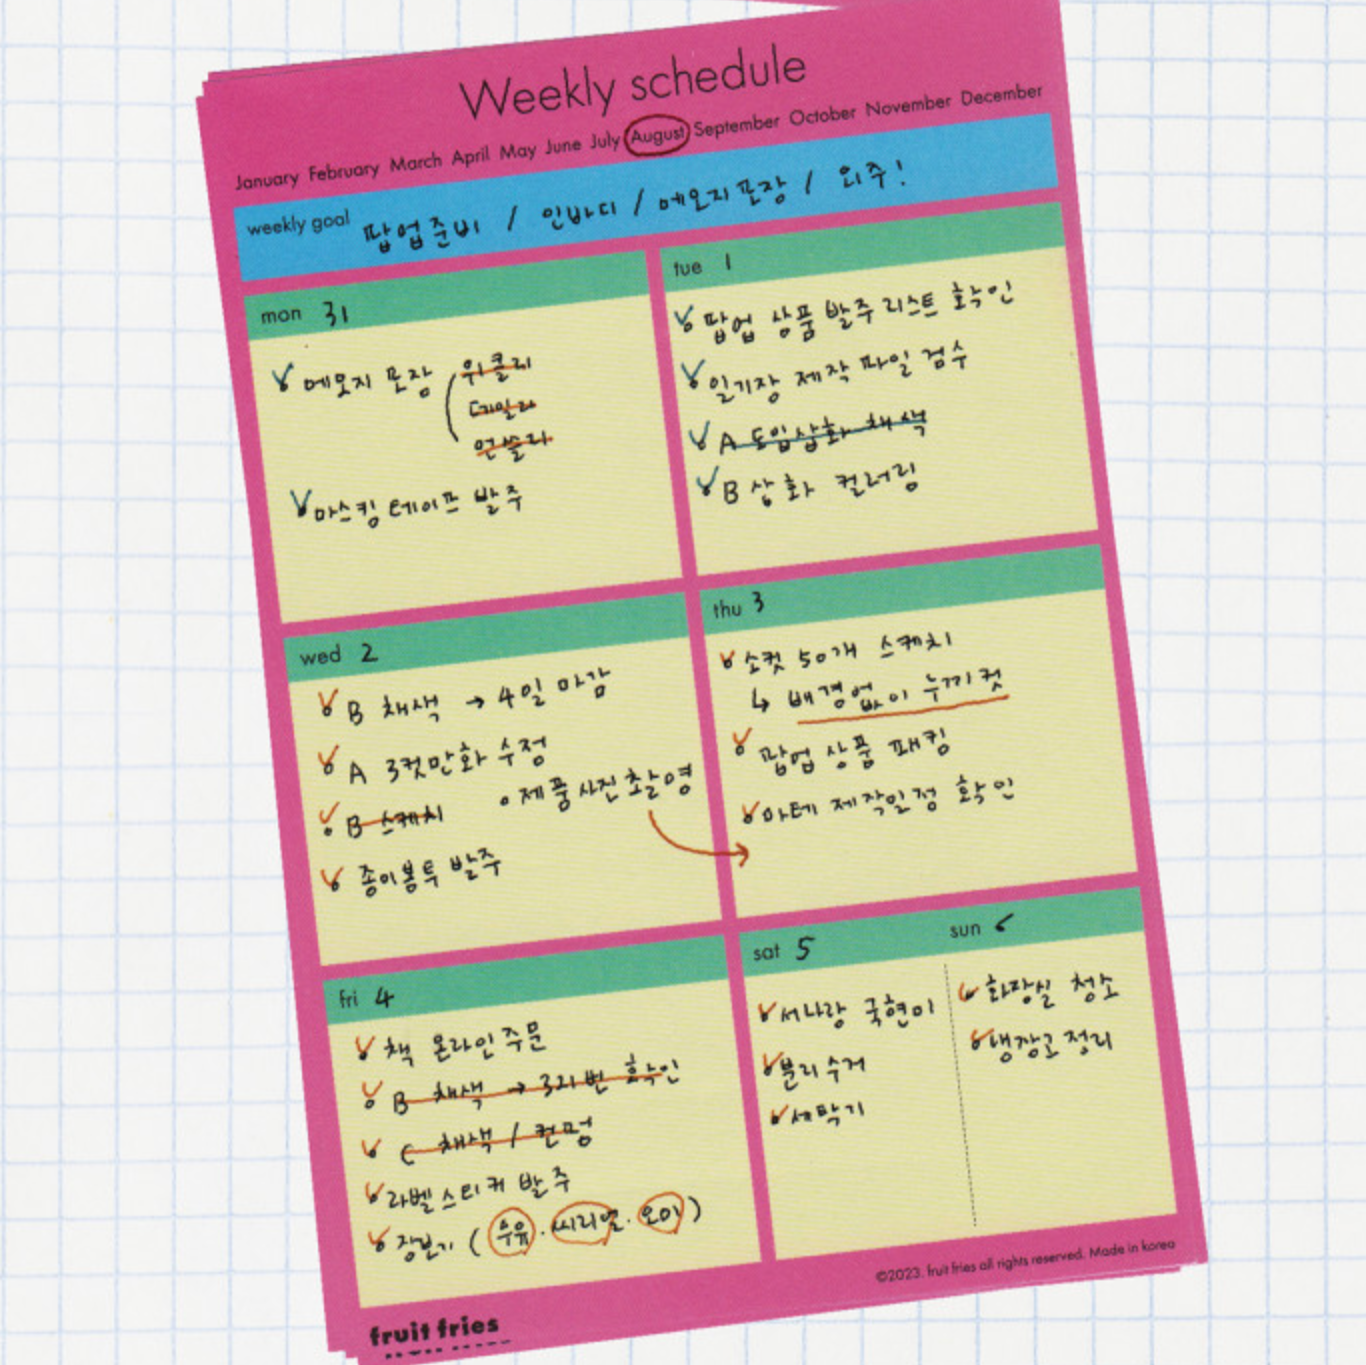 Weekly schedule
January February March April May June July August September October November December
weekly goal 팝업준비 / 인바디 / 메모지포장 / 외주!
mon 31
메모지 포장 위클리
데일리
먼쓸리
마스킹테이프 발주
tue 1
팝업 상품 발주리스트 확인
일기장 제작 파일 검수
A 도입삽화 채색
B 삽화 컬러링
wed 2
B 채색 → 4일 마감
A 3컷만화 수정
B 스케치
• 제품사진촬영
종이봉투 발주
thu 3
소컷 50개 스케치
↳ 배경없이 누끼컷
팝업 상품 패킹
마테 제작일정 확인
fri 4
책 온라인주문
B 채색 → 3지번 확인
C 채색 / 컨펌
라벨스티커 발주
장보기 ( 우유 · 씨리얼 · 오이 )
sat 5
서나랑 국현미
분리수거
세탁기
sun 6
화장실 청소
냉장고정리
©2023. fruit fries all rights reserved. Made in korea
fruit fries